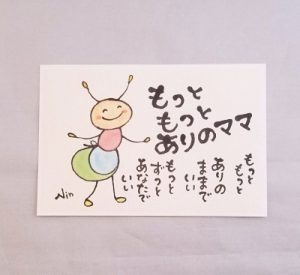 もっと
もっと
ありのママ
もっと
もっと
ありの
ままで
いい
もっと
ずっと
あなたで
いい
Nin